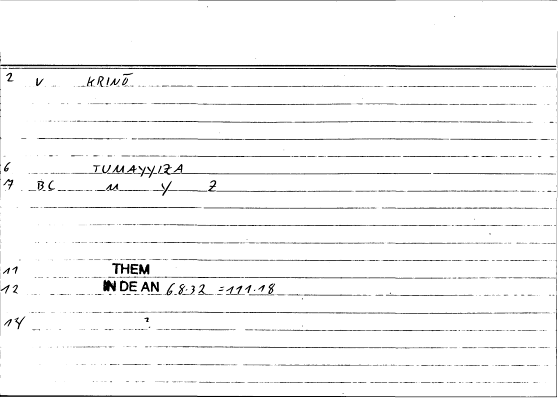 2 V KRINŌ
6 TUMAYYIZA
7 BC M Y Z
11 THEM
12 IN DE AN 6.8.32 =111.18
14 ?